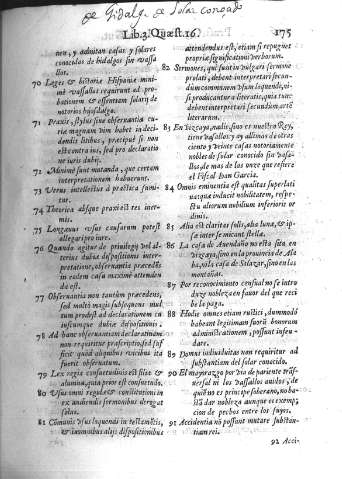 de Hidalgo de Solar conocido
Lib.3. Quæst.16. 175
nen, y aduitan casas y solares
conocidos de hidalgos sin vassa
llos.
70 Leges & historiæ Hispaniæ mini-
mè vassallos requirunt ad pro-
bationem & essentiam solarij de
notorios hijosdalgo.
71 Praxis, stylus siue obseruantia cu-
riæ magnam vim habet in deci-
dendis litibus, præcipuè si non
est contra ius, sed pro declaratio
ne iuris dubij.
72 Minimè sunt mutanda, quæ certam
interpretationem habuerunt.
73 Verus intellectus à practica sumi-
tur.
74 Theorica absque praxi est res iner-
mis.
75 Longæuus vsus causarum potest
allegari pro iure.
76 Quando agitur de priuilegij vel al-
terius dubiæ dispositionis inter-
pretatione, obseruantia præcedẽs
in eadem causa maximè attenden-
da est.
77 Obseruantia non tantùm præcedens,
sed multò magis subsequens mul-
tum prodest ad declarationem cu
iuscunque dubiæ dispositionis.
78 Ad hanc obseruantiam declaratiuam
non requiritur præscriptio, sed suf
ficit quòd aliquibus vicibus ita
fuerit obseruatum.
79 Lex regia consuetudinis est filia &
alumna, quia prior est consuetudo.
80 Vsus omni regulæ & constitutioni in
ex audiendis sermonibus derogat
solus.
81 Cõmunis vsus loquendi in testamẽtis,
& in omnibus alijs dispositionibus
attendendus est, etiam si repugnet
propriæ significationi verborum.
82 Sermones, qui fiunt in vulgari sermone
prolati, debent interpretari secun-
dùm communem vsum loquendi, ni-
si producantur à literatis, quia tunc
debent interpretari secundùm artẽ
literarum.
83 En Vizcaya, nadie, sino es nuestro Rey,
tiene vassallos: y ay allí mas de otras
ciento y veinte casas notoriamente
nobles de solar conocido sin vassa-
llos, de mas de las once que refiere
el Fiscal Iuan Garcia.
84 Omnis eminentia est qualitas superlati
uæque inducit nobilitatem, respe-
ctu aliorum nobilium inferioris or
dinis.
85 Alia est claritas solis, alia lunæ, & ip-
sæ inter se micant stellæ.
86 La casa de Auendaño no esta sita en
vizcaya, sino en la prouincia de Ala
ba, ni la casa de Salazar, sino en las
montañas.
87 Por reconocimiento censual no se intro
duze nobleza en fauor del que reci
be la paga.
88 Hodie omnes etiam rustici, dummodò
habeant legitimam suorū bonorum
administrationem, possunt infeu-
dare.
89 Domus indiuiduitas non requiritur ad
substantiam del solar conocido.
90 El mayorazgo por via de pariente trãs-
uersal ni los vassallos auidos, de
quien no es principe soberano, no ba-
sta à dar nobleza aunque es exemp,
cion de pechos entre los suyos.
91 Accidentia nõ possunt mutare substan-
tiam rei.
92 Acci-